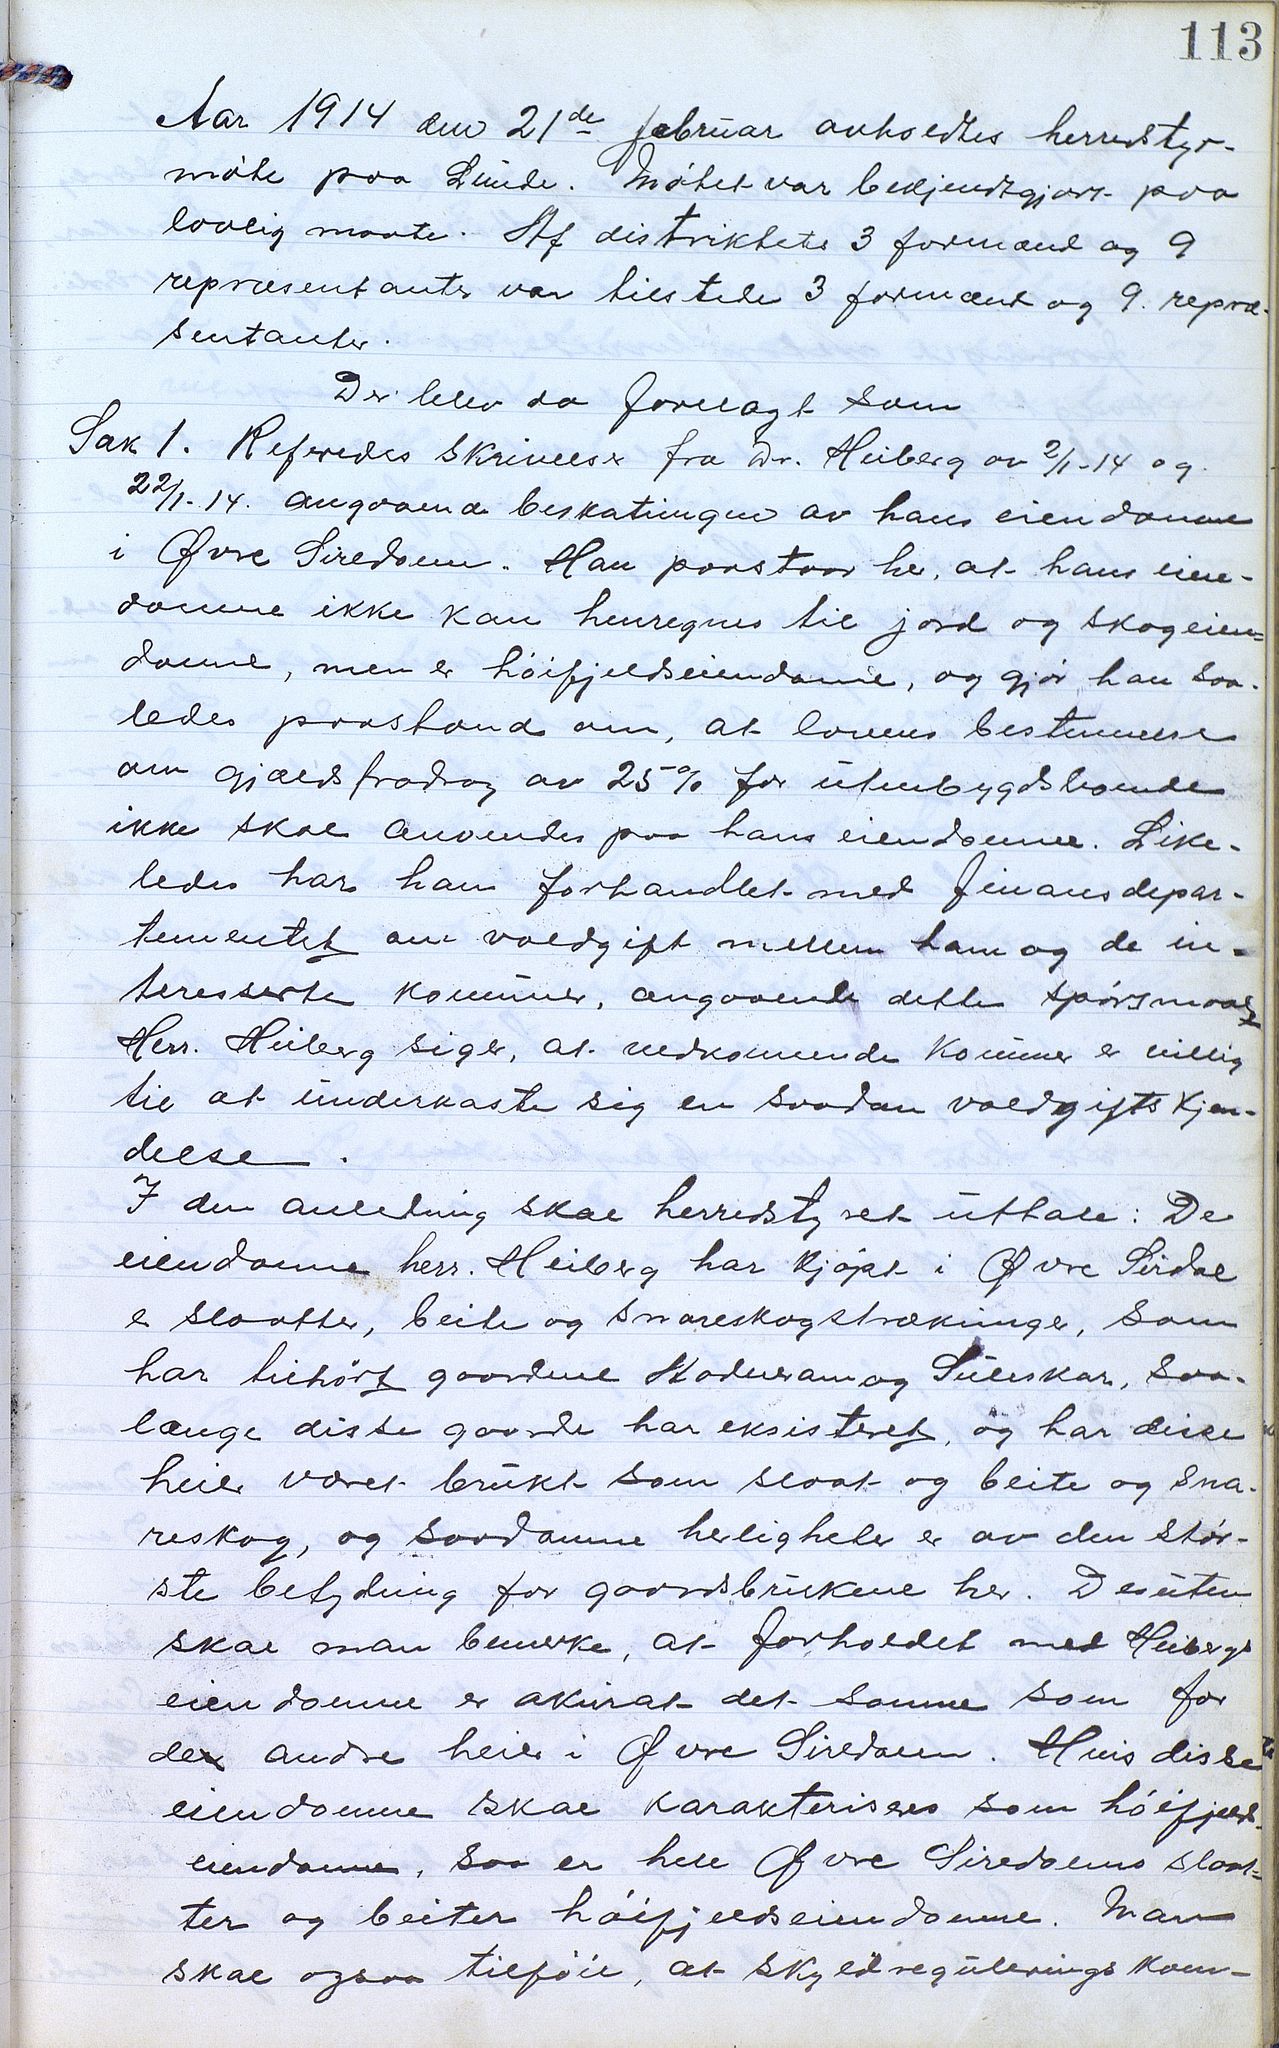 113
Aar 1914 den 21de februar avholdtes herredstyr-
møte paa Linde. Møtet var bekjendtgjort paa
lovlig maate. Af distriktets 3 formænd og 9
repræsentanter var tilstede 3 formænd og 9. repræ-
sentanter.
Der blev da forelagt som
Sak 1. Refredes skrivelser fra Dr. Heiberg av 2/1-14 og
22/1-14. angaaende beskatningen av hans eiendomme
i Øvre Siredalen. Han paastaar her, at hans eien-
domme ikke kan henregnes til jord og skogeien-
domme, men er høifjeldseiendomme, og gjør han saa-
ledes paastand om, at lovens bestemmelse
om gjældsfradrag av 25% for utenbygdsboende
ikke skal anvendes paa hans eiendomme. Like-
ledes har han forhandlet med Finansdepar-
tementet om voldgift mellem ham og de in-
teresserte kommuner, angaaende dette spørsmaal
Herr. Heiberg siger, at vedkommende kommuner er villig
til at underkaste sig en saadan voldgifts kjen-
delse.
I den anledning skal herredstyret uttale: De
eiendomme herr. Heiberg har kjøpt i Øvre Sirdal
er slaatter, beite og snareskogstrækninger, som
har tilhørt gaardene Kvæven og Suleskar, saa-
længe disse gaarde har eksisteret, og har disse
heier været brukt som slaat og beite og sna-
reskog, og saadanne herligheter er av den stør-
ste betydning for gaardsbrukene her. Desuten
skal man bemerke, at forholdet med Heibergs
eiendomme er akurat det samme som for
de andre heier i Øvre Siredalen. Hvis disse
eiendomme skal karakteriseres som høifjelds-
eiendomme, saa er hele Øvre Siredalens slaat-
ter og beiter høifjeldseiendomme. Man
skal ogsaa tilføie, at skyldregulerings kom-